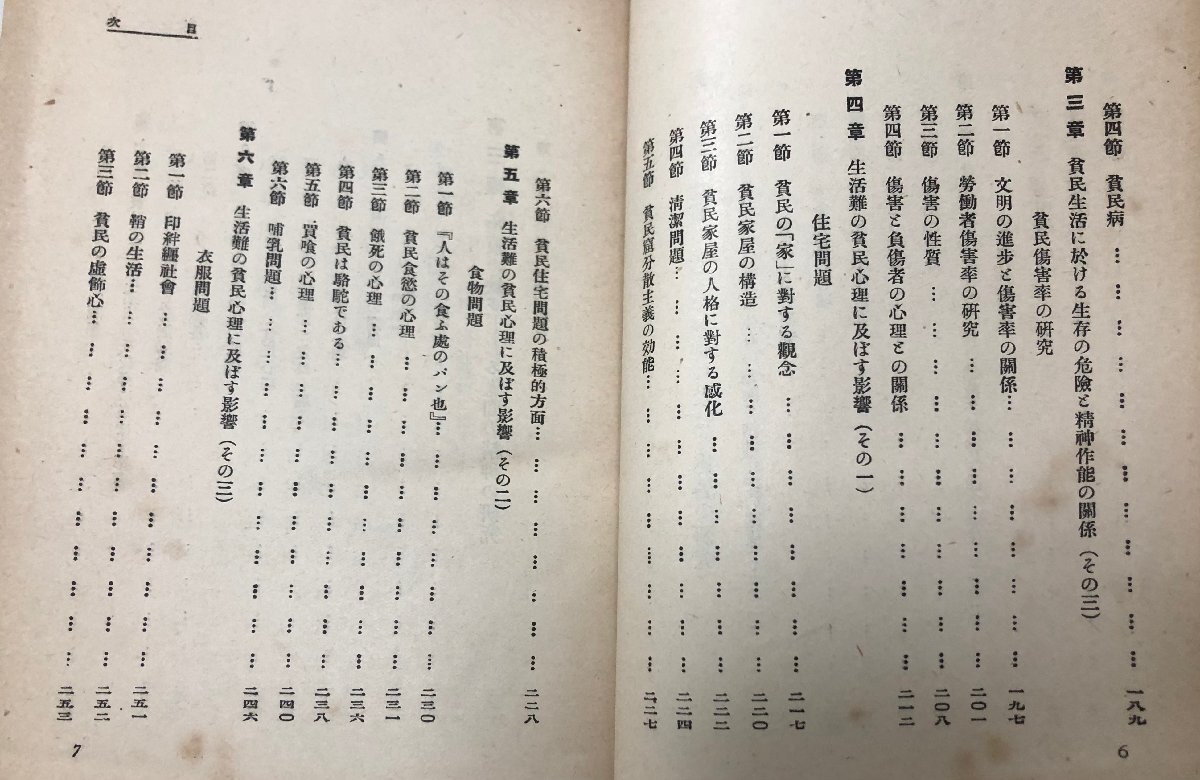 第四節 貧民病 … … … … … … … … … … … 一八九
第三章 貧民生活に於ける生存の危險と精神作能の關係（その三）
貧民傷害率の硏究
第一節 文明の進步と傷害率の關係… … … … … … … 一九七
第二節 勞働者傷害率の硏究 … … … … … … … … 二〇一
第三節 傷害の性質 … … … … … … … … … … 二〇八
第四節 傷害と負傷者の心理との關係 … … … … … … 二一二
第四章 生活難の貧民心理に及ぼす影響（その一）
住宅問題
第一節 貧民の「家」に對する觀念 … … … … … … … 二一七
第二節 貧民家屋の構造 … … … … … … … … … 二二〇
第三節 貧民家屋の人格に對する感化 … … … … … … 二二二
第四節 淸潔問題… … … … … … … … … … … 二二四
第五節 貧民窟分散主義の効能… … … … … … … … 二二七
6
目次
第六節 貧民住宅問題の積極的方面… … … … … … … 二二八
第五章 生活難の貧民心理に及ぼす影響（その二）
食物問題
第一節 『人はその食ふ處のパン也』… … … … … … … 二三〇
第二節 貧民食慾の心理 … … … … … … … … … 二三一
第三節 餓死の心理 … … … … … … … … … …
第四節 貧民は駱駝である… … … … … … … … … 二三六
第五節 買喰の心理 … … … … … … … … … … 二三八
第六節 哺乳問題… … … … … … … … … … … 二四〇
第六章 生活難の貧民心理に及ぼす影響（その三） … … … … 二四六
衣服問題
第一節 印絆纒社會 … … … … … … … … … …
第二節 鞘の生活… … … … … … … … … … … 二五一
第三節 貧民の虛飾心… … … … … … … … … … 二五二
二五三
7